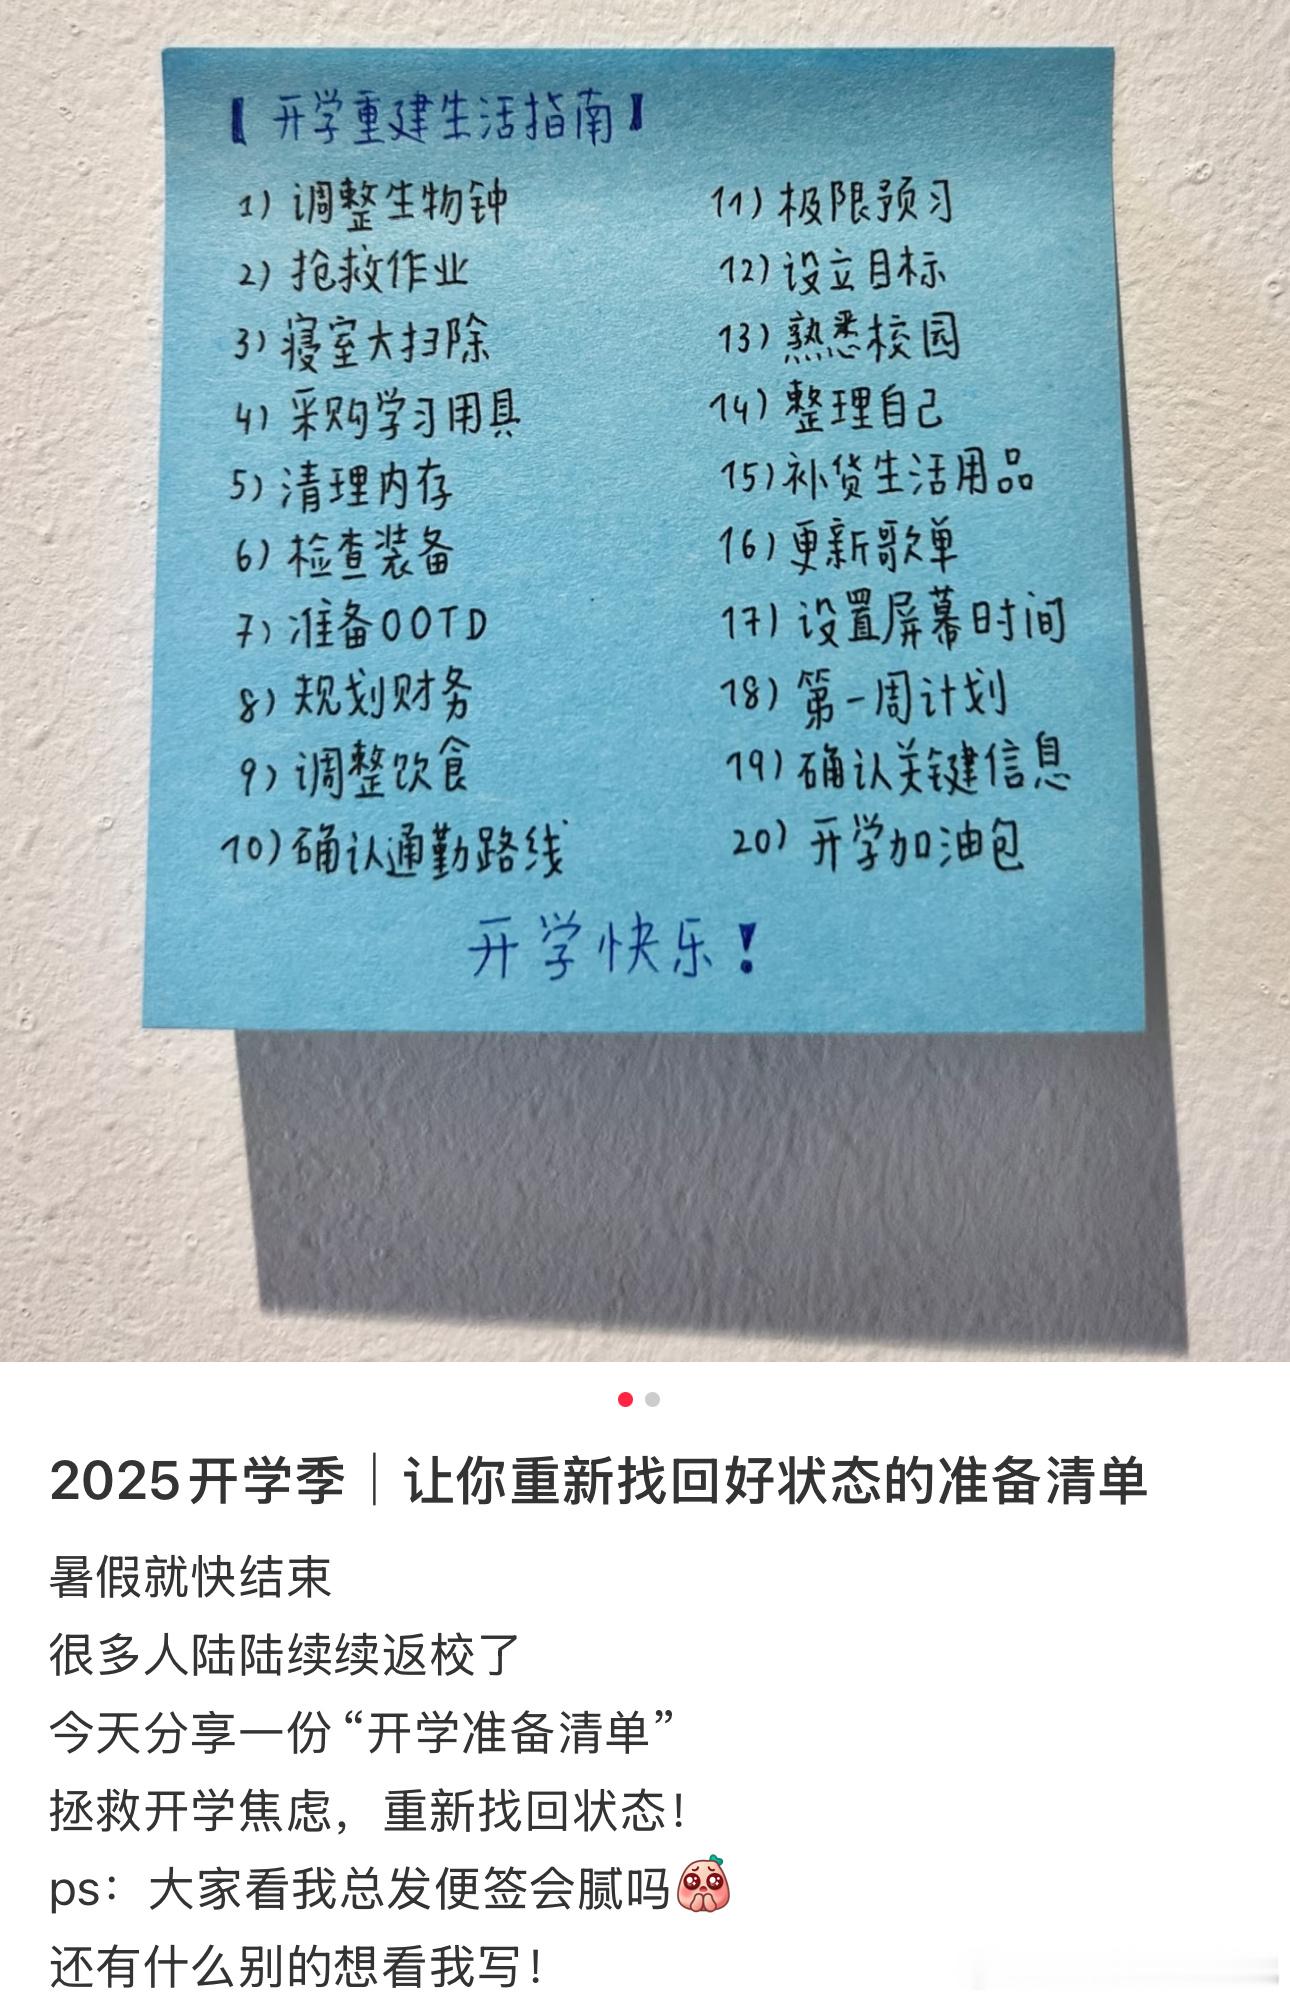 【开学重建生活指南】
1) 调整生物钟
2) 抢救作业
3) 寝室大扫除
4) 采购学习用具
5) 清理内存
6) 检查装备
7) 准备OOTD
8) 规划财务
9) 调整饮食
10) 确认通勤路线
11) 极限预习
12) 设立目标
13) 熟悉校园
14) 整理自己
15) 补货生活用品
16) 更新歌单
17) 设置屏幕时间
18) 第一周计划
19) 确认关键信息
20) 开学加油包
开学快乐!
2025开学季｜让你重新找回好状态的准备清单
暑假就快结束
很多人陆陆续续返校了
今天分享一份“开学准备清单”
拯救开学焦虑，重新找回状态！
ps：大家看我总发便签会腻吗
还有什么别的想看我写！